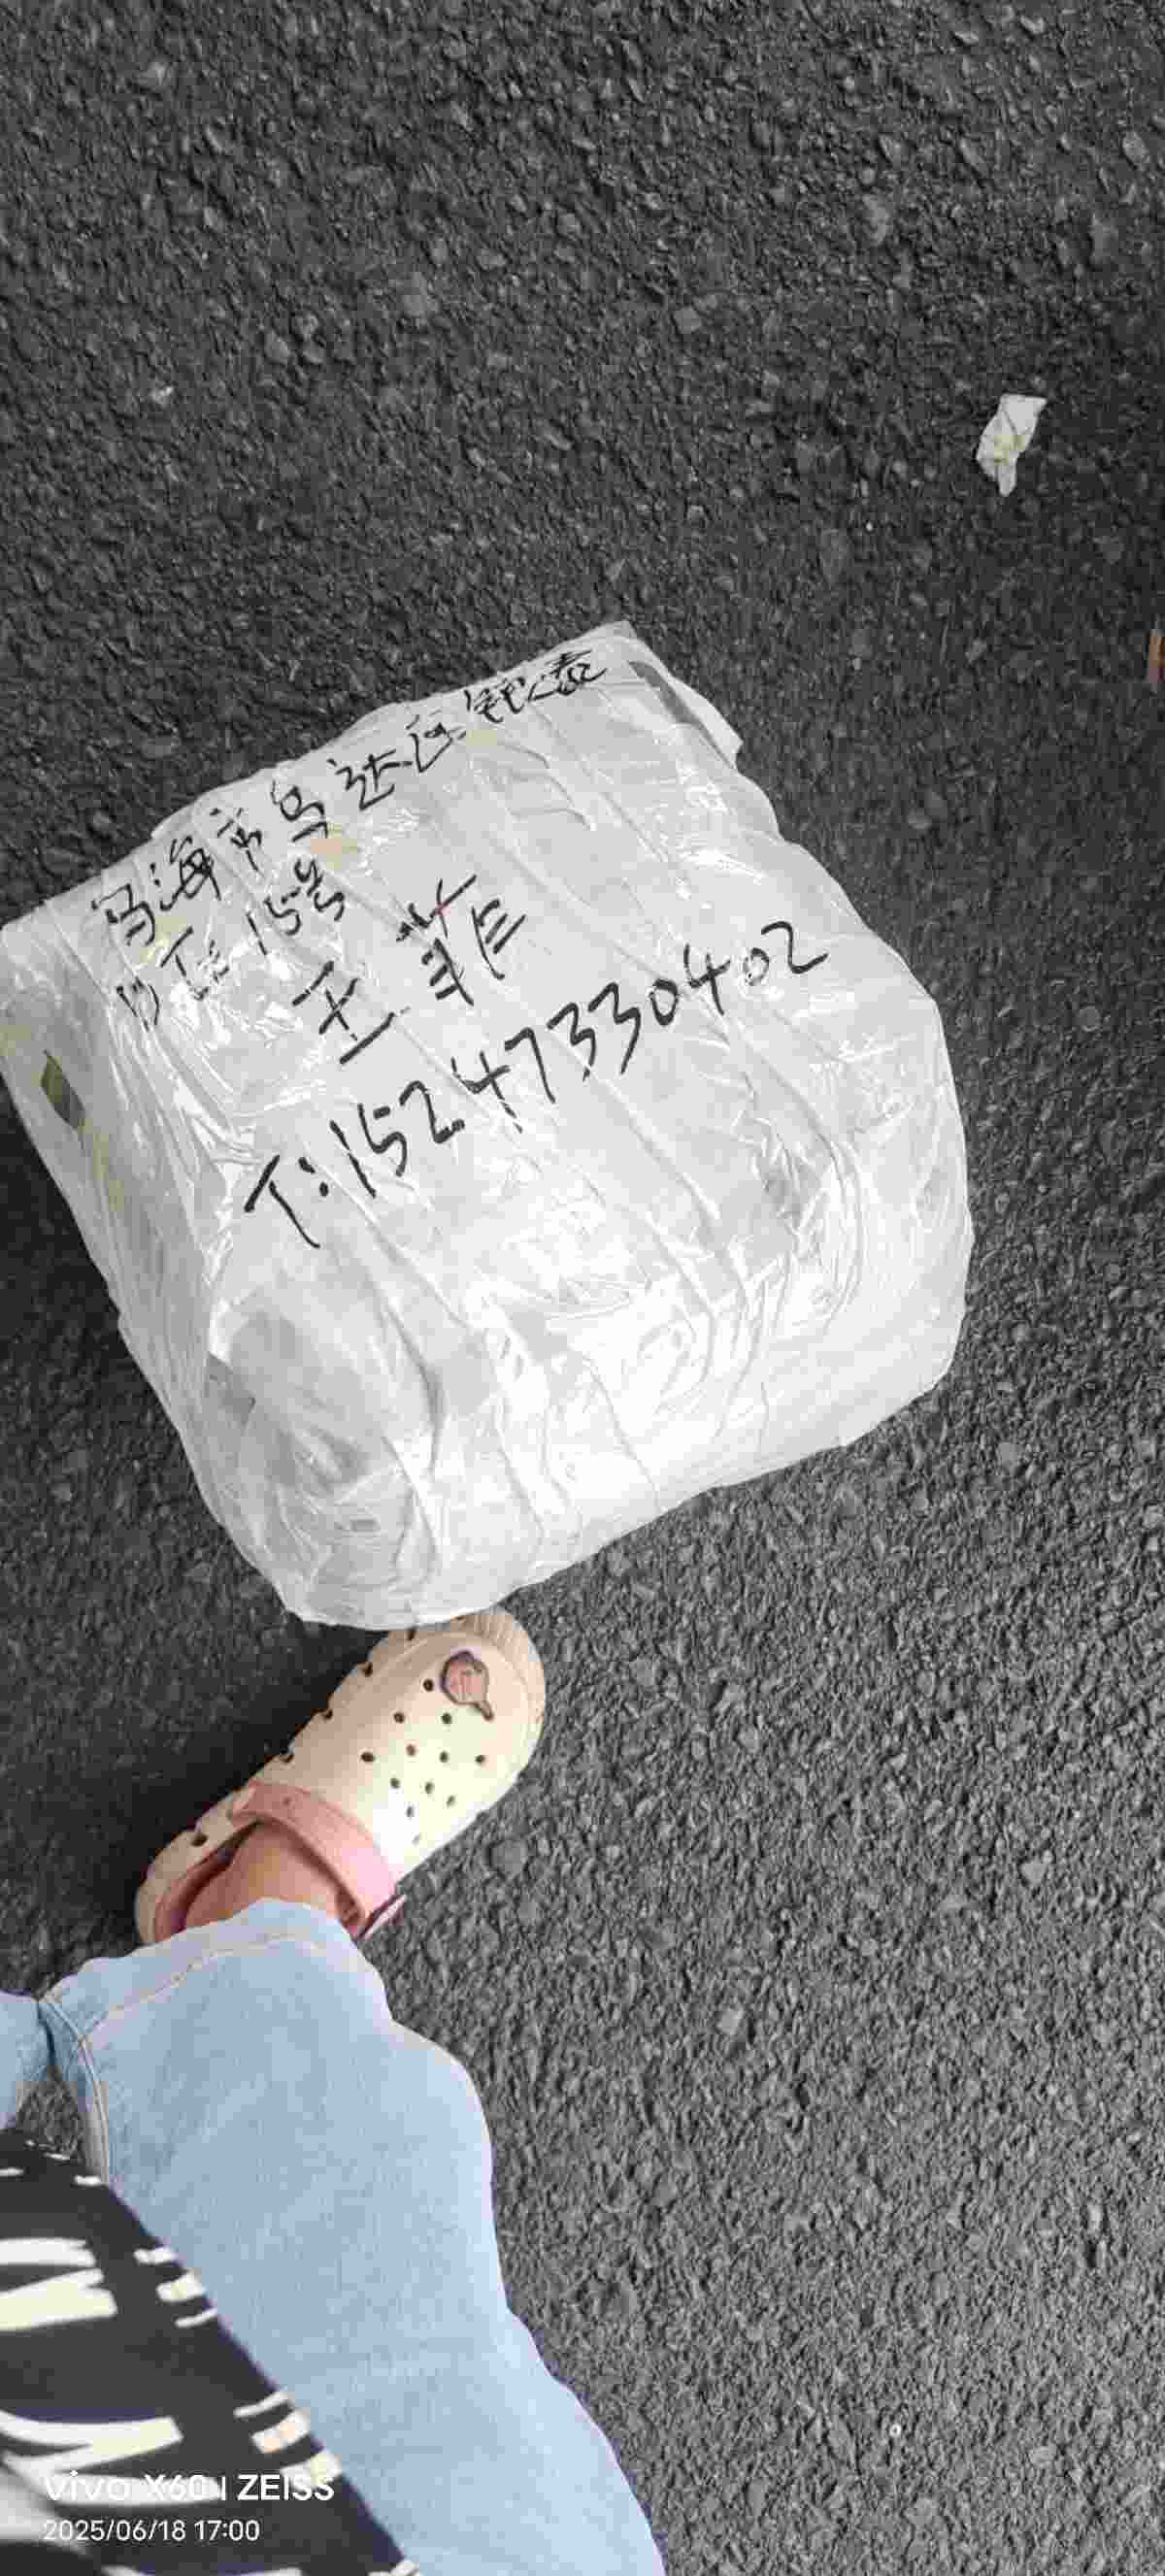 乌海市乌达区锦泰
B下 15号
王菲
T:15247330402
vivo X60 | ZEISS
2025/06/18 17:00